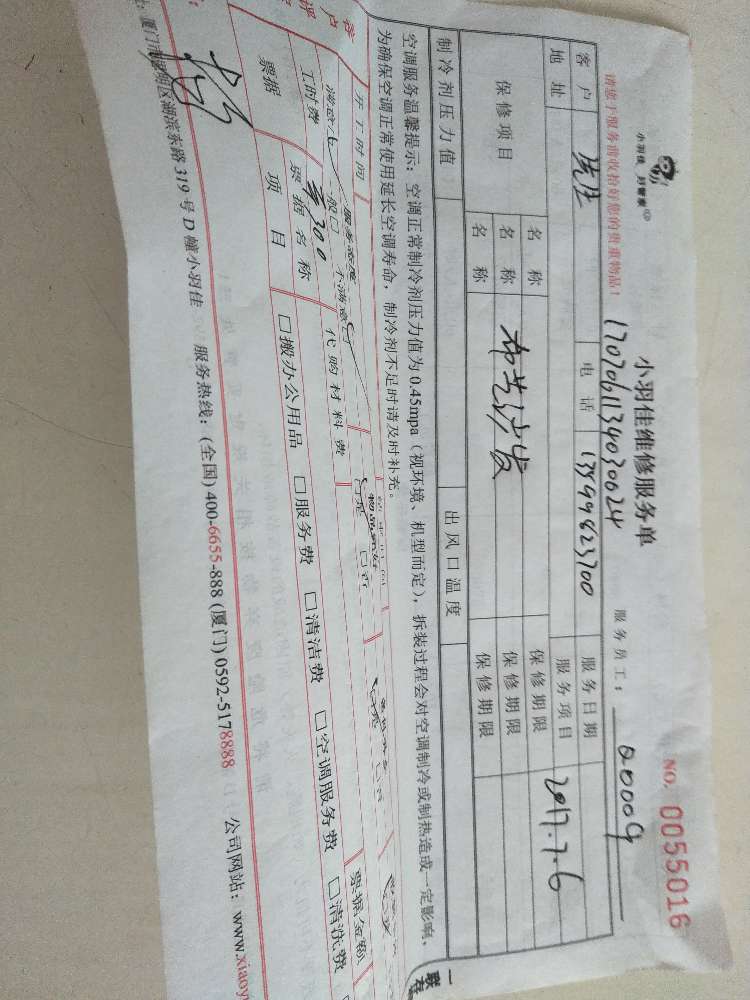 小羽佳 好管家
小羽佳维修服务单
NO. 0055016
请您于服务前收拾好您的贵重物品!
1707061134030024
服务员工: 00009
客户
电话 13599823700
服务日期
地址
服务项目
2017.7.6
保修项目
名称
保修期限
名称 布艺沙发
保修期限
名称
保修期限
制冷剂压力值
出风口温度
空调服务温馨提示:空调正常制冷剂压力值为 0.45mpa(视环境、机型而定),拆装过程会对空调制冷或制热造成一定影响,
为确保空调正常使用延长空调寿命,制冷剂不足时请及时补充。
开工时间
客户
服务态度
满意 一般 不满意
工时费 300
代购材料费
票据金额
票据
票据名称
项目
口搬办公用品 口服务费 口清洁费 口空调服务费 口清洗费
湖滨东路 319 号 D 幢小羽佳 服务热线:(全国) 400-6655-888 (厦门) 0592-5178888 公司网站:www.xiaoy